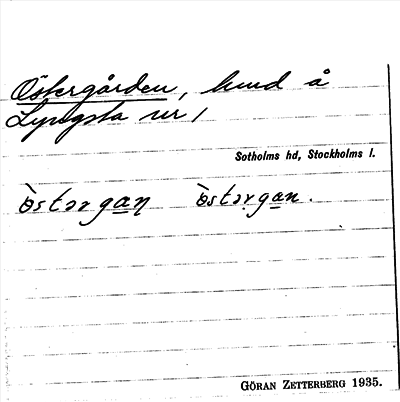 Östergården, hmd å
Lyngsta nr 1
Sotholms hd, Stockholms l.
ò̈stərgan̥ ò̈stərgan.
GÖRAN ZETTERBERG 1935.